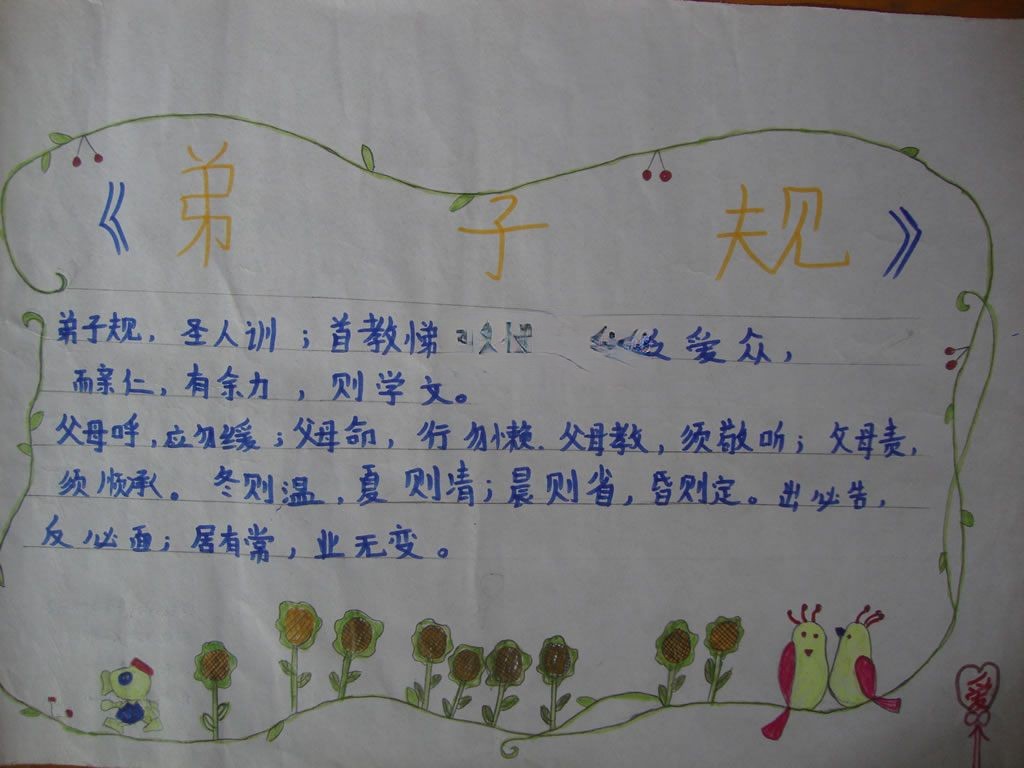 《弟子规》
弟子规，圣人训；首教悌 爱众，
而亲仁，有余力，则学文。
父母呼，应勿缓；父母命，行勿懒.父母教，须敬听；父母责，
须顺承。冬则温，夏则凊；晨则省，昏则定。出必告，
反必面；居有常，业无变。
爱